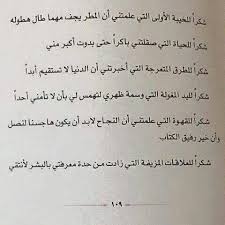 شكراً للخيبة الأولى التي علمتني أن المطر يجف مهما طال هطوله
شكراً للحياة التي صقلتني باكراً حتى بدوت أكبر مني
شكراً للطرق المتعرجة التي أخبرتني أن الدنيا لا تستقيم أبداً
شكراً لليد المغولة التي وسمة ظهري لتهمس لي بأن لا تأمني أحداً
شكراً للقهوة التي علمتني أن النجاح لابد أن يكون هاجسنا لنصل
وأن خير رفيق الكتاب
شكراً للعلاقات المزيفة التي زادت من حدة معرفتي بالبشر لأنتقي
١٠٩